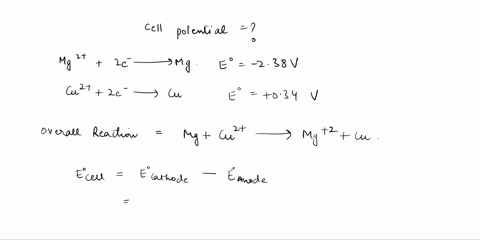 Cell potential = ?
Mg²⁺ + 2e⁻ ⟶ Mg. E° = -2.38 V
Cu²⁺ + 2e⁻ ⟶ Cu E° = +0.34 V
Overall Reaction = Mg + Cu²⁺ ⟶ Mg⁺² + Cu.
E°cell = E°cathode - E°Anode
=